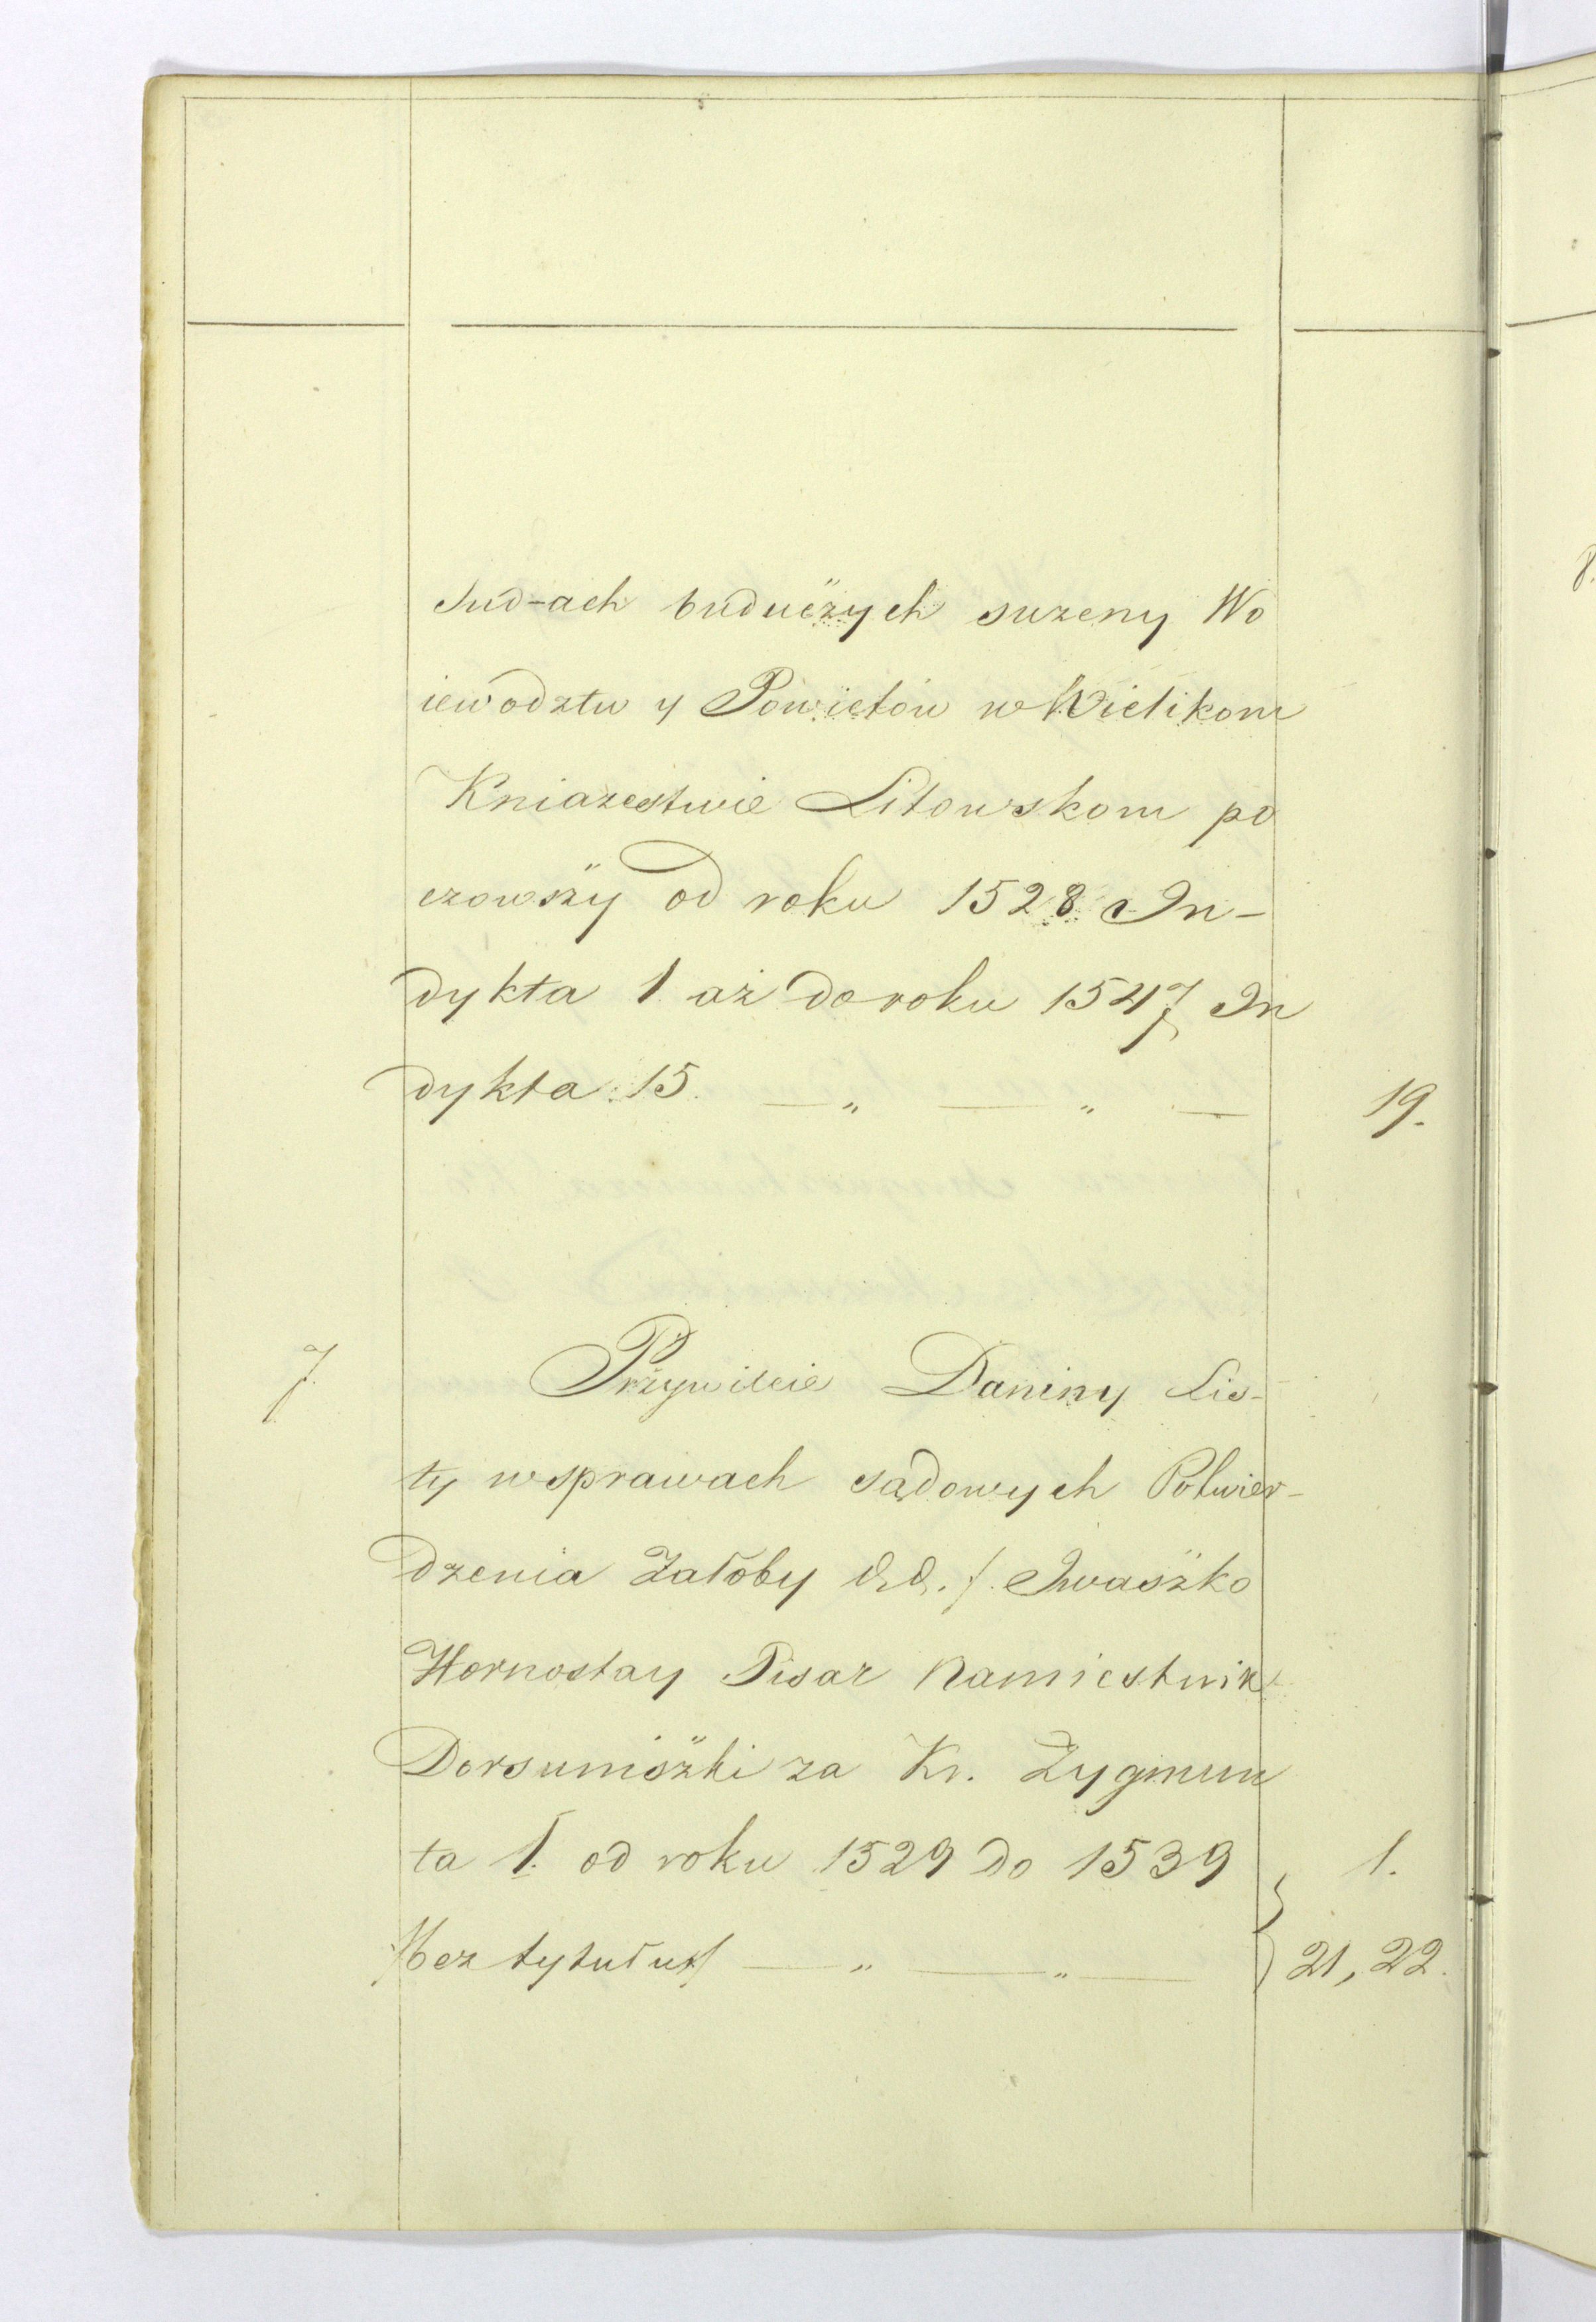 Sud-ach buduczych suzeny Wo
iewodztw y Powietów w Wielikom
Kniazestwie Litowskom po
czowszy od roku 1528 In-
dykta 1. aż do roku 1547 In
dykta 15. — " — " — 19.
7. Przywileie Daniny Lis-
ty w sprawach sądowych Potwier-
dzenia Załoby &. &. /. Iwaszko
Hornostay Pisar Namiestnik
Dorsuniszki za Kr. Zygmun
ta 1. od roku 1529 do 1539 1.
/bez tytułu/ — " — " — 21, 22.
8.